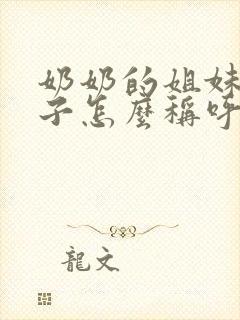 奶奶的姐妹
子怎麼稱呼
龍文